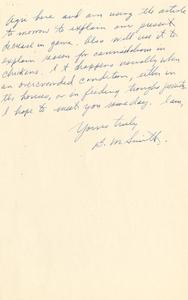 Agri here and am using the article
to morrow to explain our present
decease in game. Also will use it to
explain reason for cannabalism in
chickens. It happens usually when
an overcrowded condition, either in
the houses, or in feeding troughs
I hope to meet you someday. I am,
Yours truly
B. M. Smith.